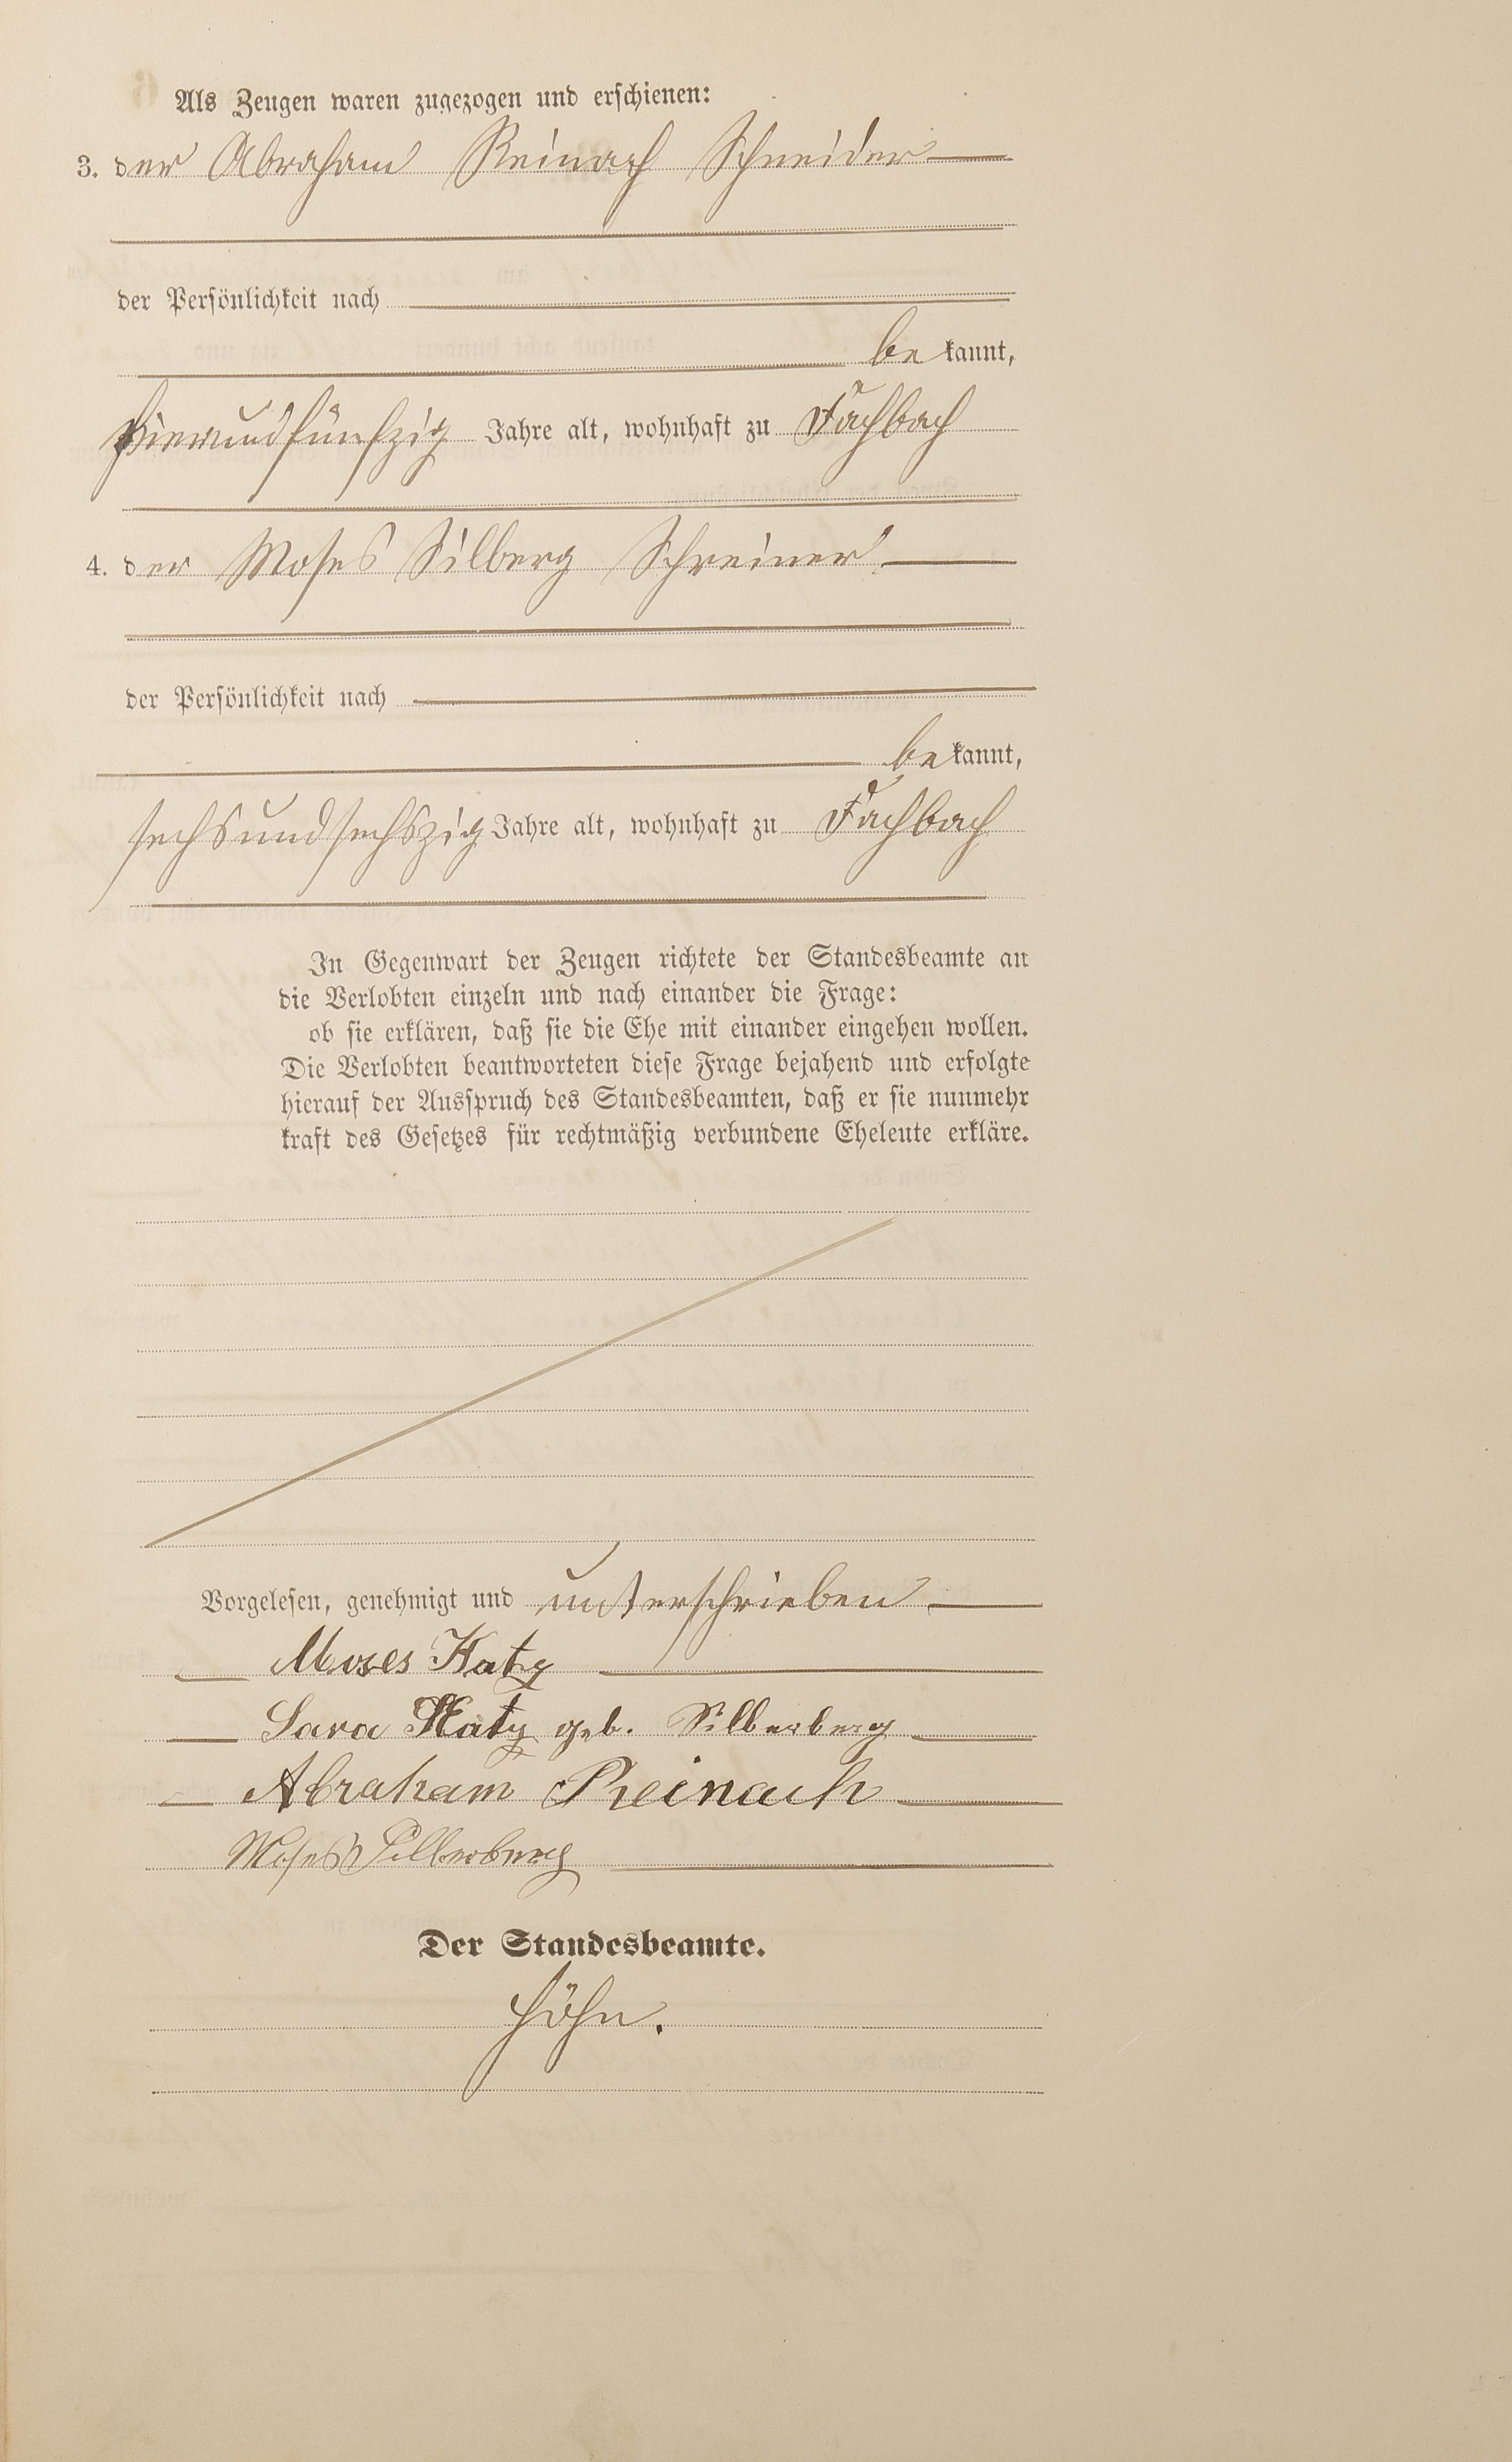 Als Zeugen waren zugezogen und erschienen:
3. der Abraham Reinach Schneider
der Persönlichkeit nach
be kannt,
vierundfünfzig Jahre alt, wohnhaft zu Fachbach
4. der Moses Silberg Schreiner
der Persönlichkeit nach
be kannt,
sechsundsechszig Jahre alt, wohnhaft zu Fachbach
In Gegenwart der Zeugen richtete der Standesbeamte an
die Verlobten einzeln und nach einander die Frage:
ob sie erklären, daß sie die Ehe mit einander eingehen wollen.
Die Verlobten beantworteten diese Frage bejahend und erfolgte
hierauf der Ausspruch des Standesbeamten, daß er sie nunmehr
kraft des Gesetzes für rechtmäßig verbundene Eheleute erkläre.
Vorgelesen, genehmigt und unterschrieben
Moses Katz
Sara Katz geb. Silberberg
Abraham Reinach
Moses Silberberg
Der Standesbeamte.
Höhn.